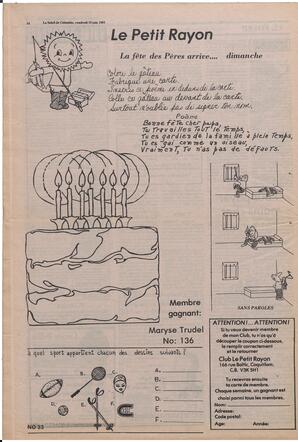 Le Soleil de Colombie, vendredi 19 juin 1981
Le Petit Rayon
La fête des Pères arrive.... dimanche
Colore le gâteau
Fabrique une carte.
Inscris ce poème en dedans de la carte.
Colle ce gâteau au devant de la carte.
Surtout n'oublie pas de signer ton nom.
Poème
Bonne fête cher papa,
Tu travailles TOUT le Temps,
Tu es gardien de la famille à plein Temps,
Tu es gai comme un oiseau,
Vraiment, Tu n'as pas de défauts.
SANS PAROLES
Membre
gagnant:
Maryse Trudel
No: 136
à quel sport appartient chacun des dessins suivants?
A.-
B.-
C.-
D.-
E.-
F.-
NO 33
ATTENTION!...ATTENTION!
Si tu veux devenir membre
de mon Club, tu n'as qu'à
découper le coupon ci-dessous,
le remplir correctement
et le retourner
Club Le Petit Rayon
166 rue Baltic, Coquitlam,
C.B. V3K 5H1
Tu recevras ensuite
ta carte de membre.
Chaque semaine, un gagnant est
choisi parmi tous les membres.
Nom:
Adresse:
Code postal:
Age: